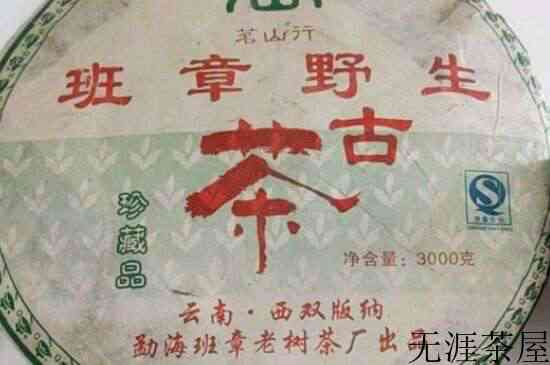 茗山行
班章野生
古
茶
珍藏品
净含量：3000克
云南·西双版纳
勐海班章老树茶厂出品
无涯茶屋